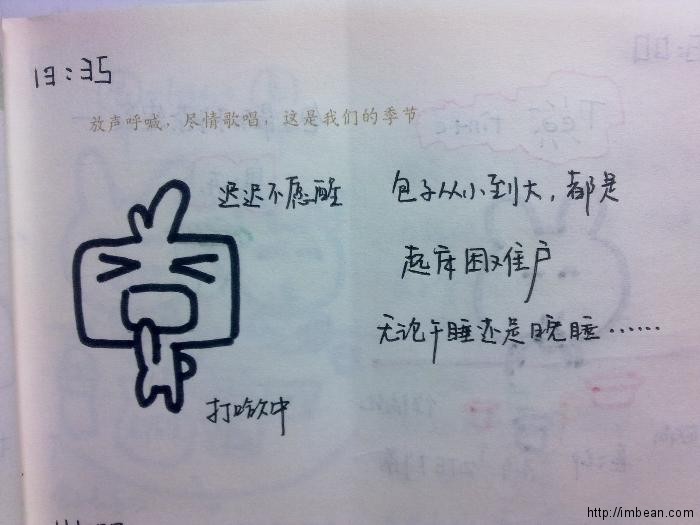 13:35
放声呼喊，尽情歌唱，这是我们的季节
迟迟不愿醒
包子从小到大，都是
起床困难户
无论午睡还是晚睡……
打哈欠中
http://imbean.com